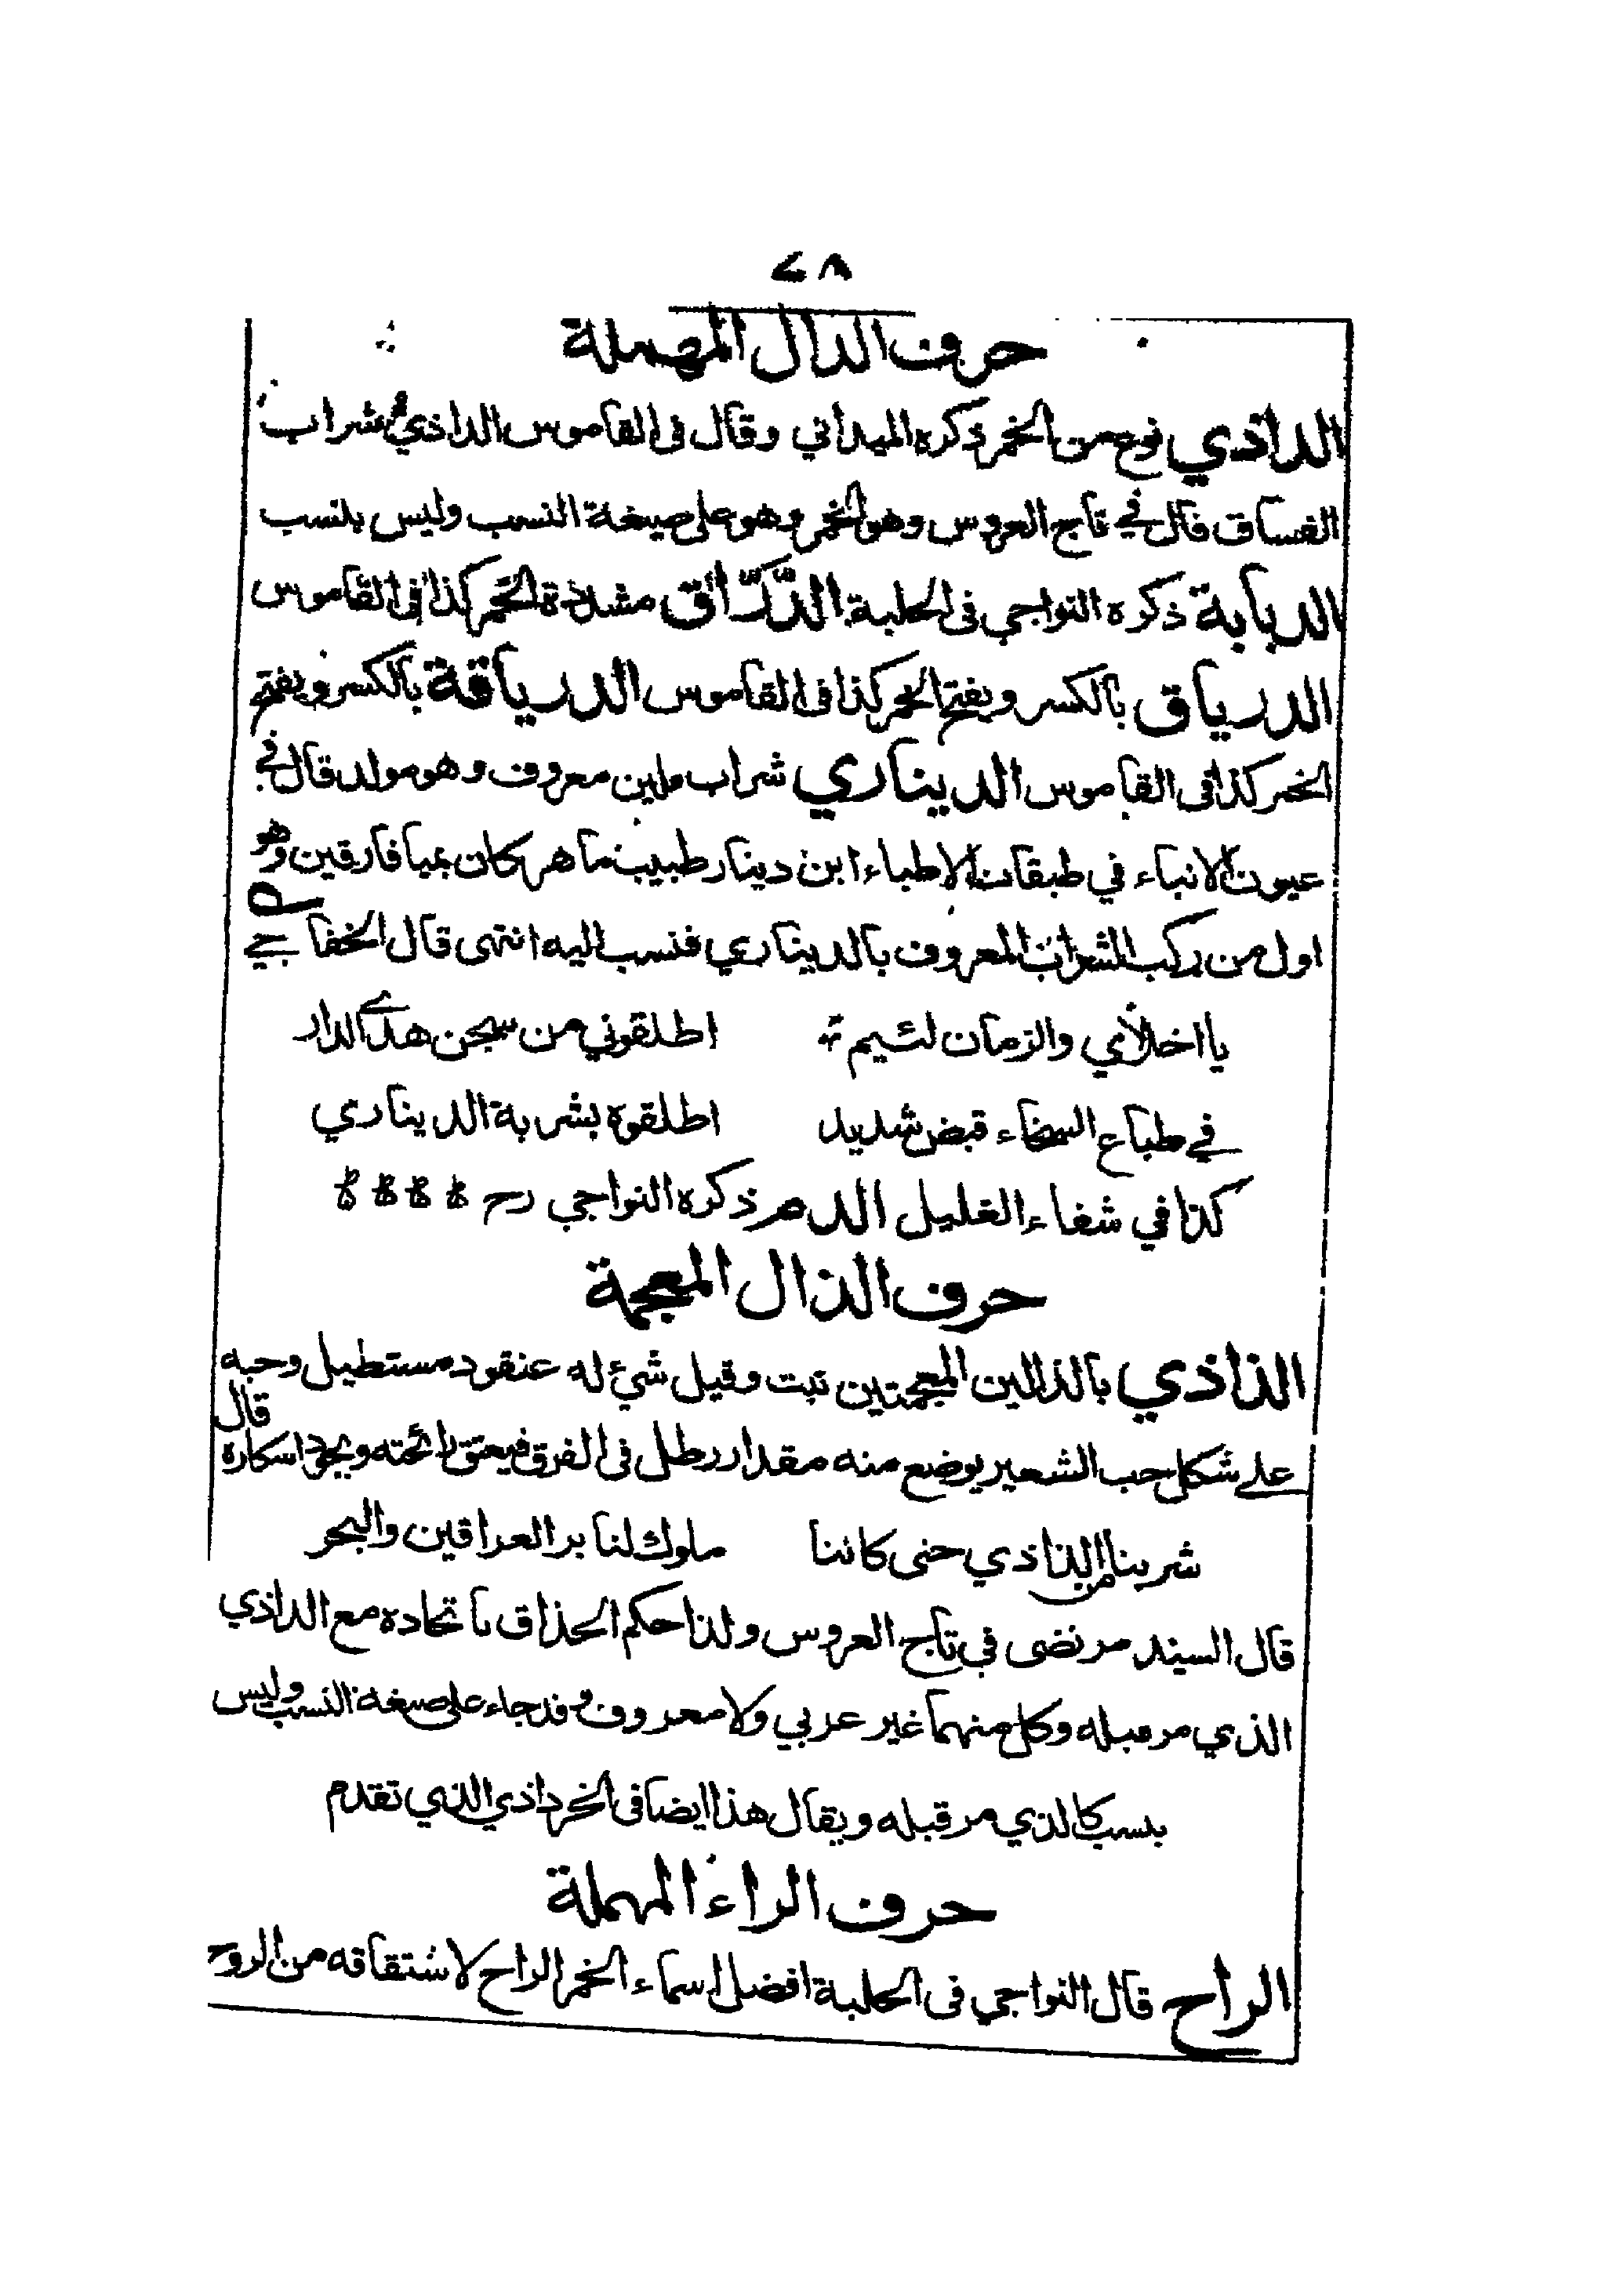 ٢٨
حرف الدال المهملة
الداذي نوع من الخمر ذكره الميداني وقال فى القاموس الداذيُّ شراب
الفساق قال في تاج العروس وهو الخمر وهو على صيغة النسب وليس بنسب
الدبابة ذكره النواجي فى الحلبة الدَّرَّاق مشددة الخمر كذا فى القاموس
الدرياق بالكسر ويفتح الخمر كذا فى القاموس الدرياقة بالكسر ويفتح
الخمر كذا فى القاموس الديناري شراب ملين معروف وهو مولد قال في
عيون الانباء في طبقات الاطباء ابن دينار طبيب ماهر كان بميافارقين وهو
اول من ركب الشراب المعروف بالديناري فنسب اليه انتهى قال الخفاجي
يا اخلأي والزمان لئيم اطلقوني من سجن هذي الدار
في طباع السخاء قبض شديد اطلقوه بشربة الديناري
كذا في شفاء الغليل الدم ذكره النواجي رح
حرف الذال المعجمة
الذاذي بالذالين المعجمتين نبت وقيل شئ له عنقود مستطيل وحبه
على شكل حب الشعير يوضع منه مقدار رطل فى الفرق فيعتق رائحته ويجود اسكاره قال
شربنا من الذاذي حتى كاننا ملوك لنا بر العراقين والبحر
قال السيد مرتضى في تاج العروس ولذا حكم الحذاق باتحاده مع الداذي
الذي مر قبله وكل منهما غير عربي ولا معروف وقد جاء على صيغة النسب وليس
بنسب كالذي مر قبله ويقال هذا ايضا فى الخرداذي الذي تقدم
حرف الراء المهملة
الراح قال النواجي فى الحلبة افضل اسماء الخمر الراح لاشتقاقه من الروح